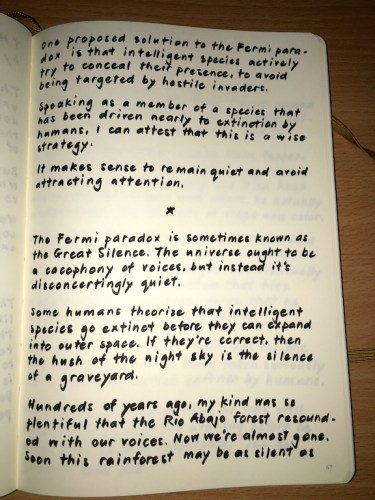 One proposed solution to the Fermi para-
dox is that intelligent species actively
try to conceal their presence, to avoid
being targeted by hostile invaders.
Speaking as a member of a species that
has been driven nearly to extinction by
humans, I can attest that this is a wise
strategy.
It makes sense to remain quiet and avoid
attracting attention.
*
The Fermi paradox is sometimes known as
the Great Silence. The universe ought to be
a cacophony of voices, but instead it's
disconcertingly quiet.
Some humans theorize that intelligent
species go extinct before they can expand
into outer space. If they're correct, then
the hush of the night sky is the silence
of a graveyard.
Hundreds of years ago, my kind was so
plentiful that the Río Abajo forest resound-
ed with our voices. Now we're almost gone.
Soon this rainforest may be as silent as